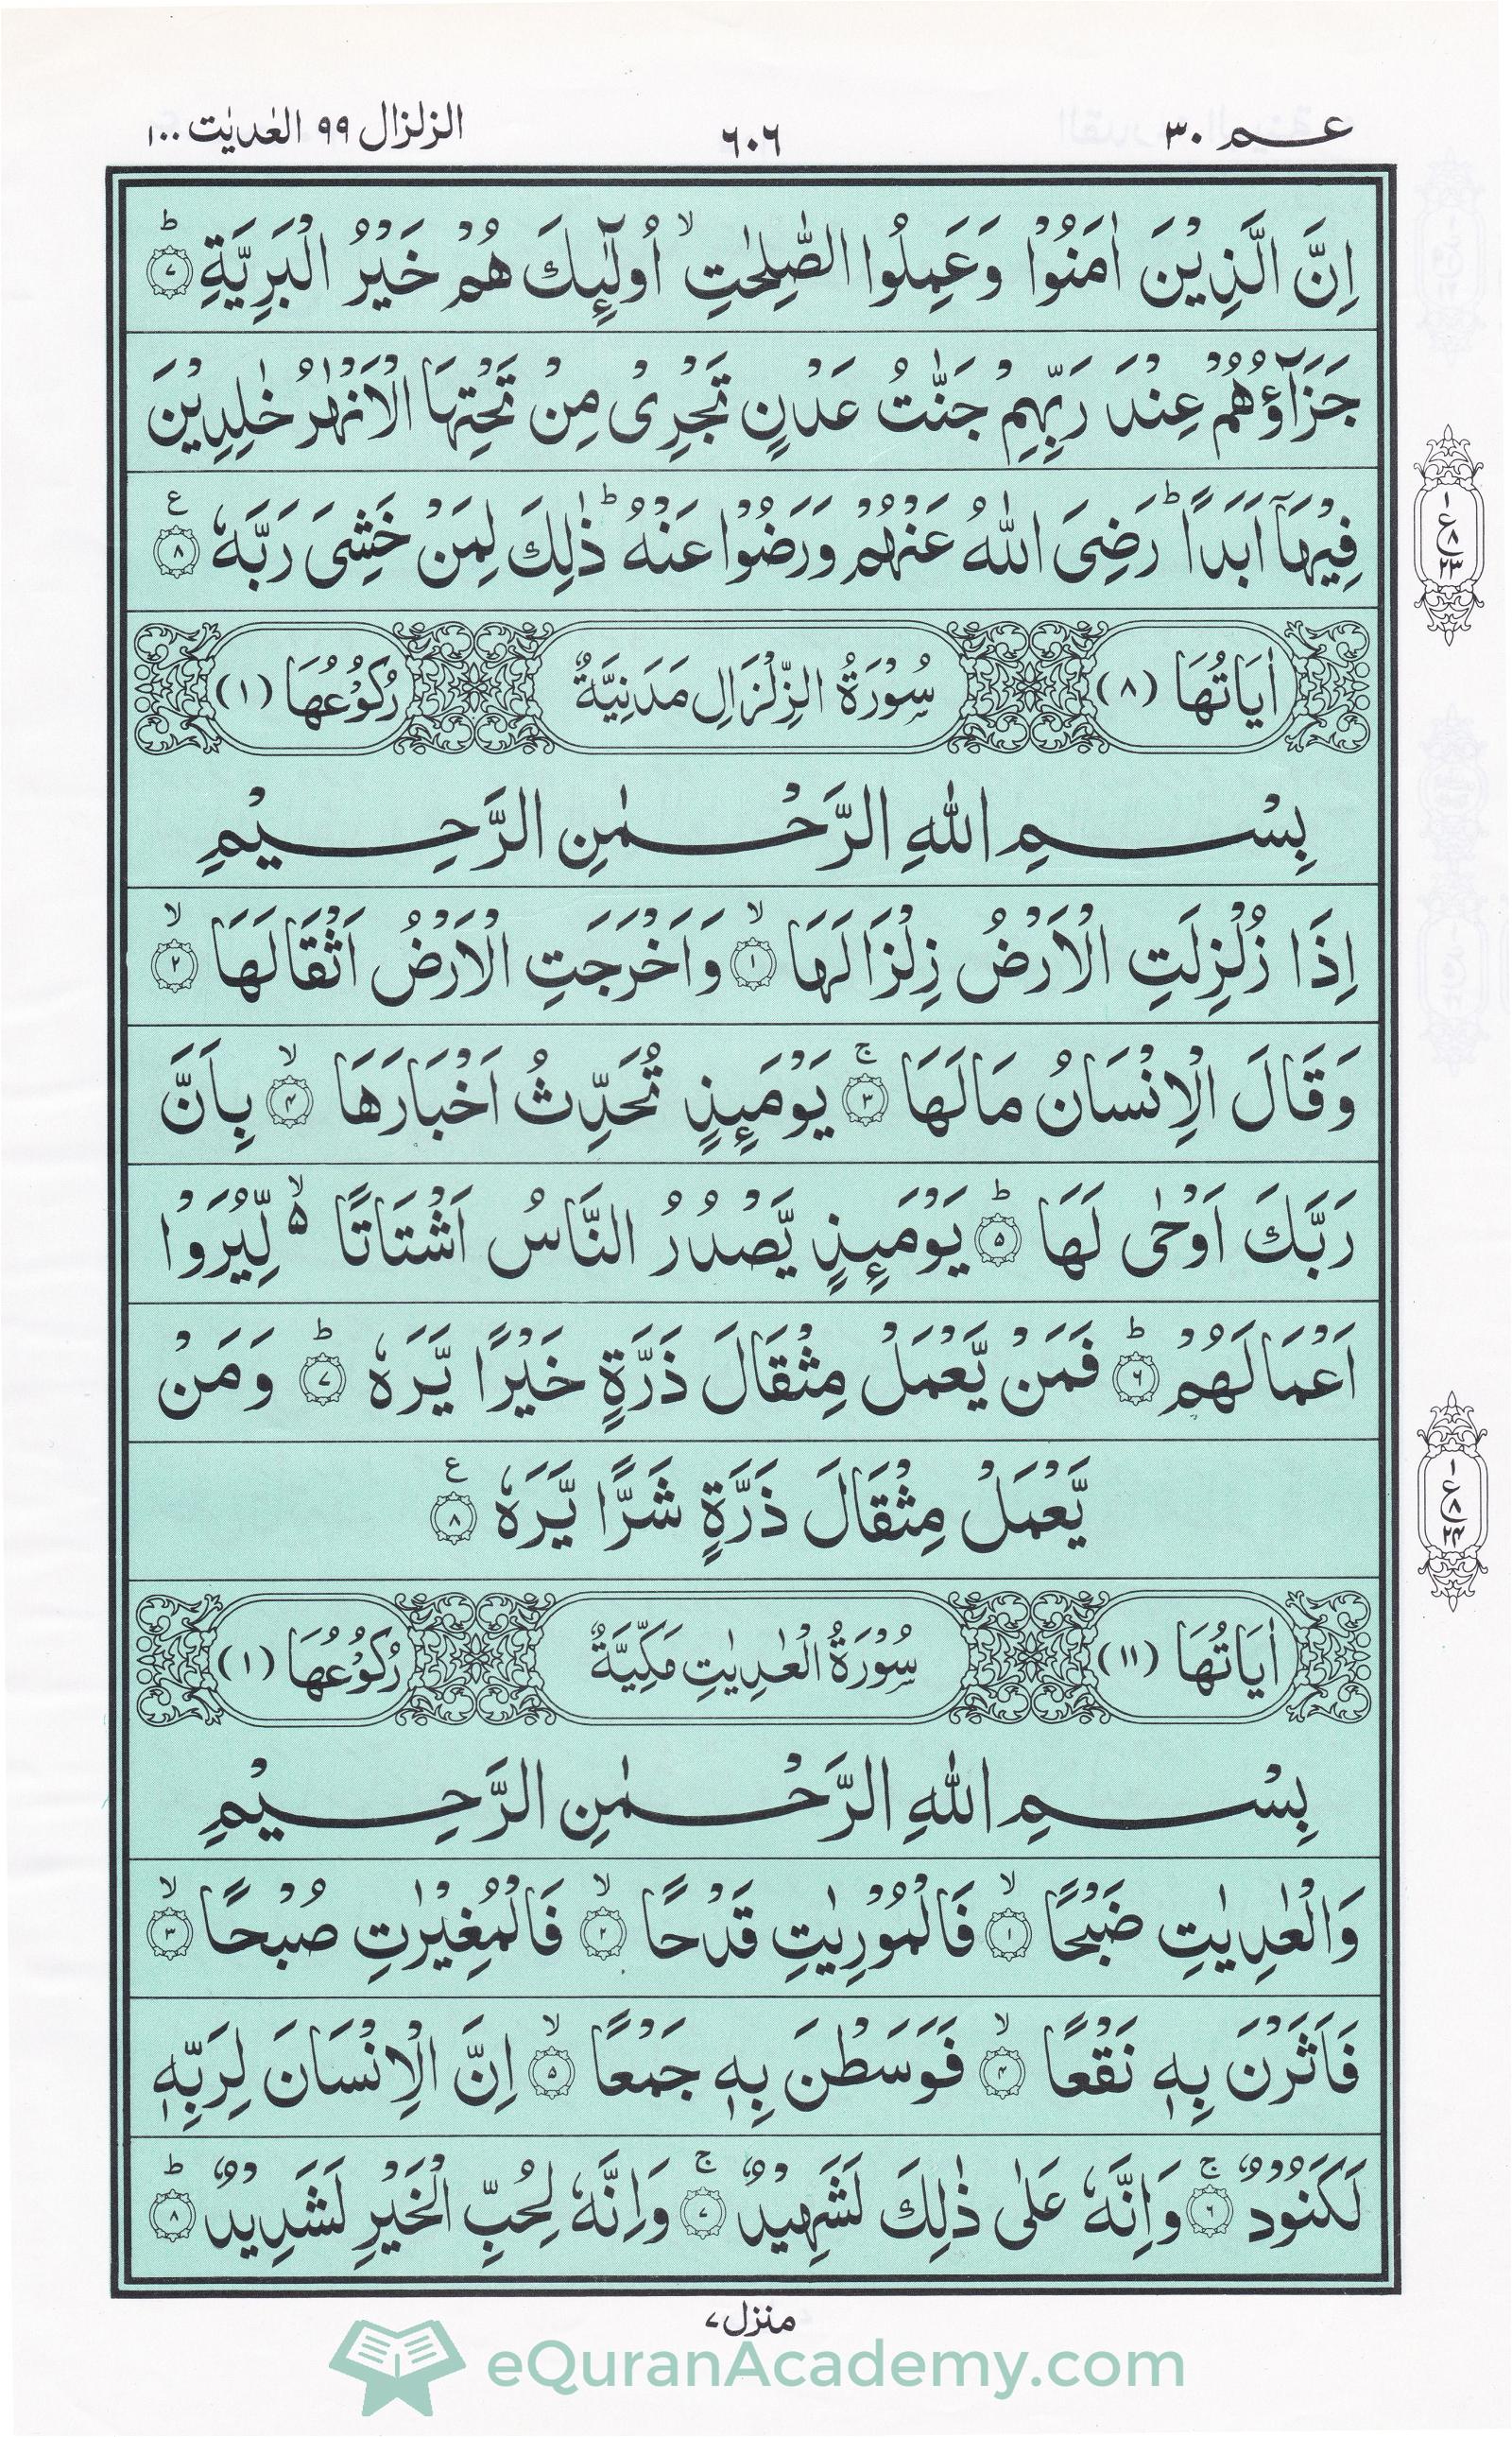 عـم ٣٠
٦٠٦
الزلزال ٩٩ العٰدیٰت ١٠٠
اِنَّ الَّذِیْنَ اٰمَنُوْا وَعَمِلُوا الصّٰلِحٰتِ ۙ اُولٰٓئِكَ هُمْ خَیْرُ الْبَرِیَّةِ ؕ ﴿۷﴾
جَزَآؤُهُمْ عِنْدَ رَبِّهِمْ جَنّٰتُ عَدْنٍ تَجْرِیْ مِنْ تَحْتِهَا الْاَنْهٰرُ خٰلِدِیْنَ
فِیْهَاۤ اَبَدًا ؕ رَضِیَ اللّٰهُ عَنْهُمْ وَرَضُوْا عَنْهُ ؕ ذٰلِكَ لِمَنْ خَشِیَ رَبَّهٗ ﴿۸﴾ ع
١ ع ٨ ٢٣
اٰیَاتُهَا (٨)
سُوْرَةُ الزِّلْزَالِ مَدَنِیَّةٌ
رُكُوْعُهَا (١)
بِسْمِ اللّٰهِ الرَّحْمٰنِ الرَّحِیْمِ
اِذَا زُلْزِلَتِ الْاَرْضُ زِلْزَالَهَا ۙ ﴿۱﴾ وَاَخْرَجَتِ الْاَرْضُ اَثْقَالَهَا ۙ ﴿۲﴾
وَقَالَ الْاِنْسَانُ مَالَهَا ۚ ﴿۳﴾ یَوْمَئِذٍ تُحَدِّثُ اَخْبَارَهَا ۙ ﴿۴﴾ بِاَنَّ
رَبَّكَ اَوْحٰی لَهَا ؕ ﴿۵﴾ یَوْمَئِذٍ یَّصْدُرُ النَّاسُ اَشْتَاتًا ۵ۙ لِّیُرَوْا
اَعْمَالَهُمْ ؕ ﴿۶﴾ فَمَنْ یَّعْمَلْ مِثْقَالَ ذَرَّةٍ خَیْرًا یَّرَهٗ ؕ ﴿۷﴾ وَمَنْ
یَّعْمَلْ مِثْقَالَ ذَرَّةٍ شَرًّا یَّرَهٗ ﴿۸﴾ ع
١ ع ٨ ٢۴
اٰیَاتُهَا (١١)
سُوْرَةُ الْعٰدِیٰتِ مَكِّیَّةٌ
رُكُوْعُهَا (١)
بِسْمِ اللّٰهِ الرَّحْمٰنِ الرَّحِیْمِ
وَالْعٰدِیٰتِ ضَبْحًا ۙ ﴿۱﴾ فَالْمُوْرِیٰتِ قَدْحًا ۙ ﴿۲﴾ فَالْمُغِیْرٰتِ صُبْحًا ۙ ﴿۳﴾
فَاَثَرْنَ بِهٖ نَقْعًا ۙ ﴿۴﴾ فَوَسَطْنَ بِهٖ جَمْعًا ۙ ﴿۵﴾ اِنَّ الْاِنْسَانَ لِرَبِّهٖ
لَكَنُوْدٌ ۚ ﴿۶﴾ وَاِنَّهٗ عَلٰی ذٰلِكَ لَشَهِیْدٌ ۚ ﴿۷﴾ وَاِنَّهٗ لِحُبِّ الْخَیْرِ لَشَدِیْدٌ ؕ ﴿۸﴾
منزل ۷
eQuranAcademy.com